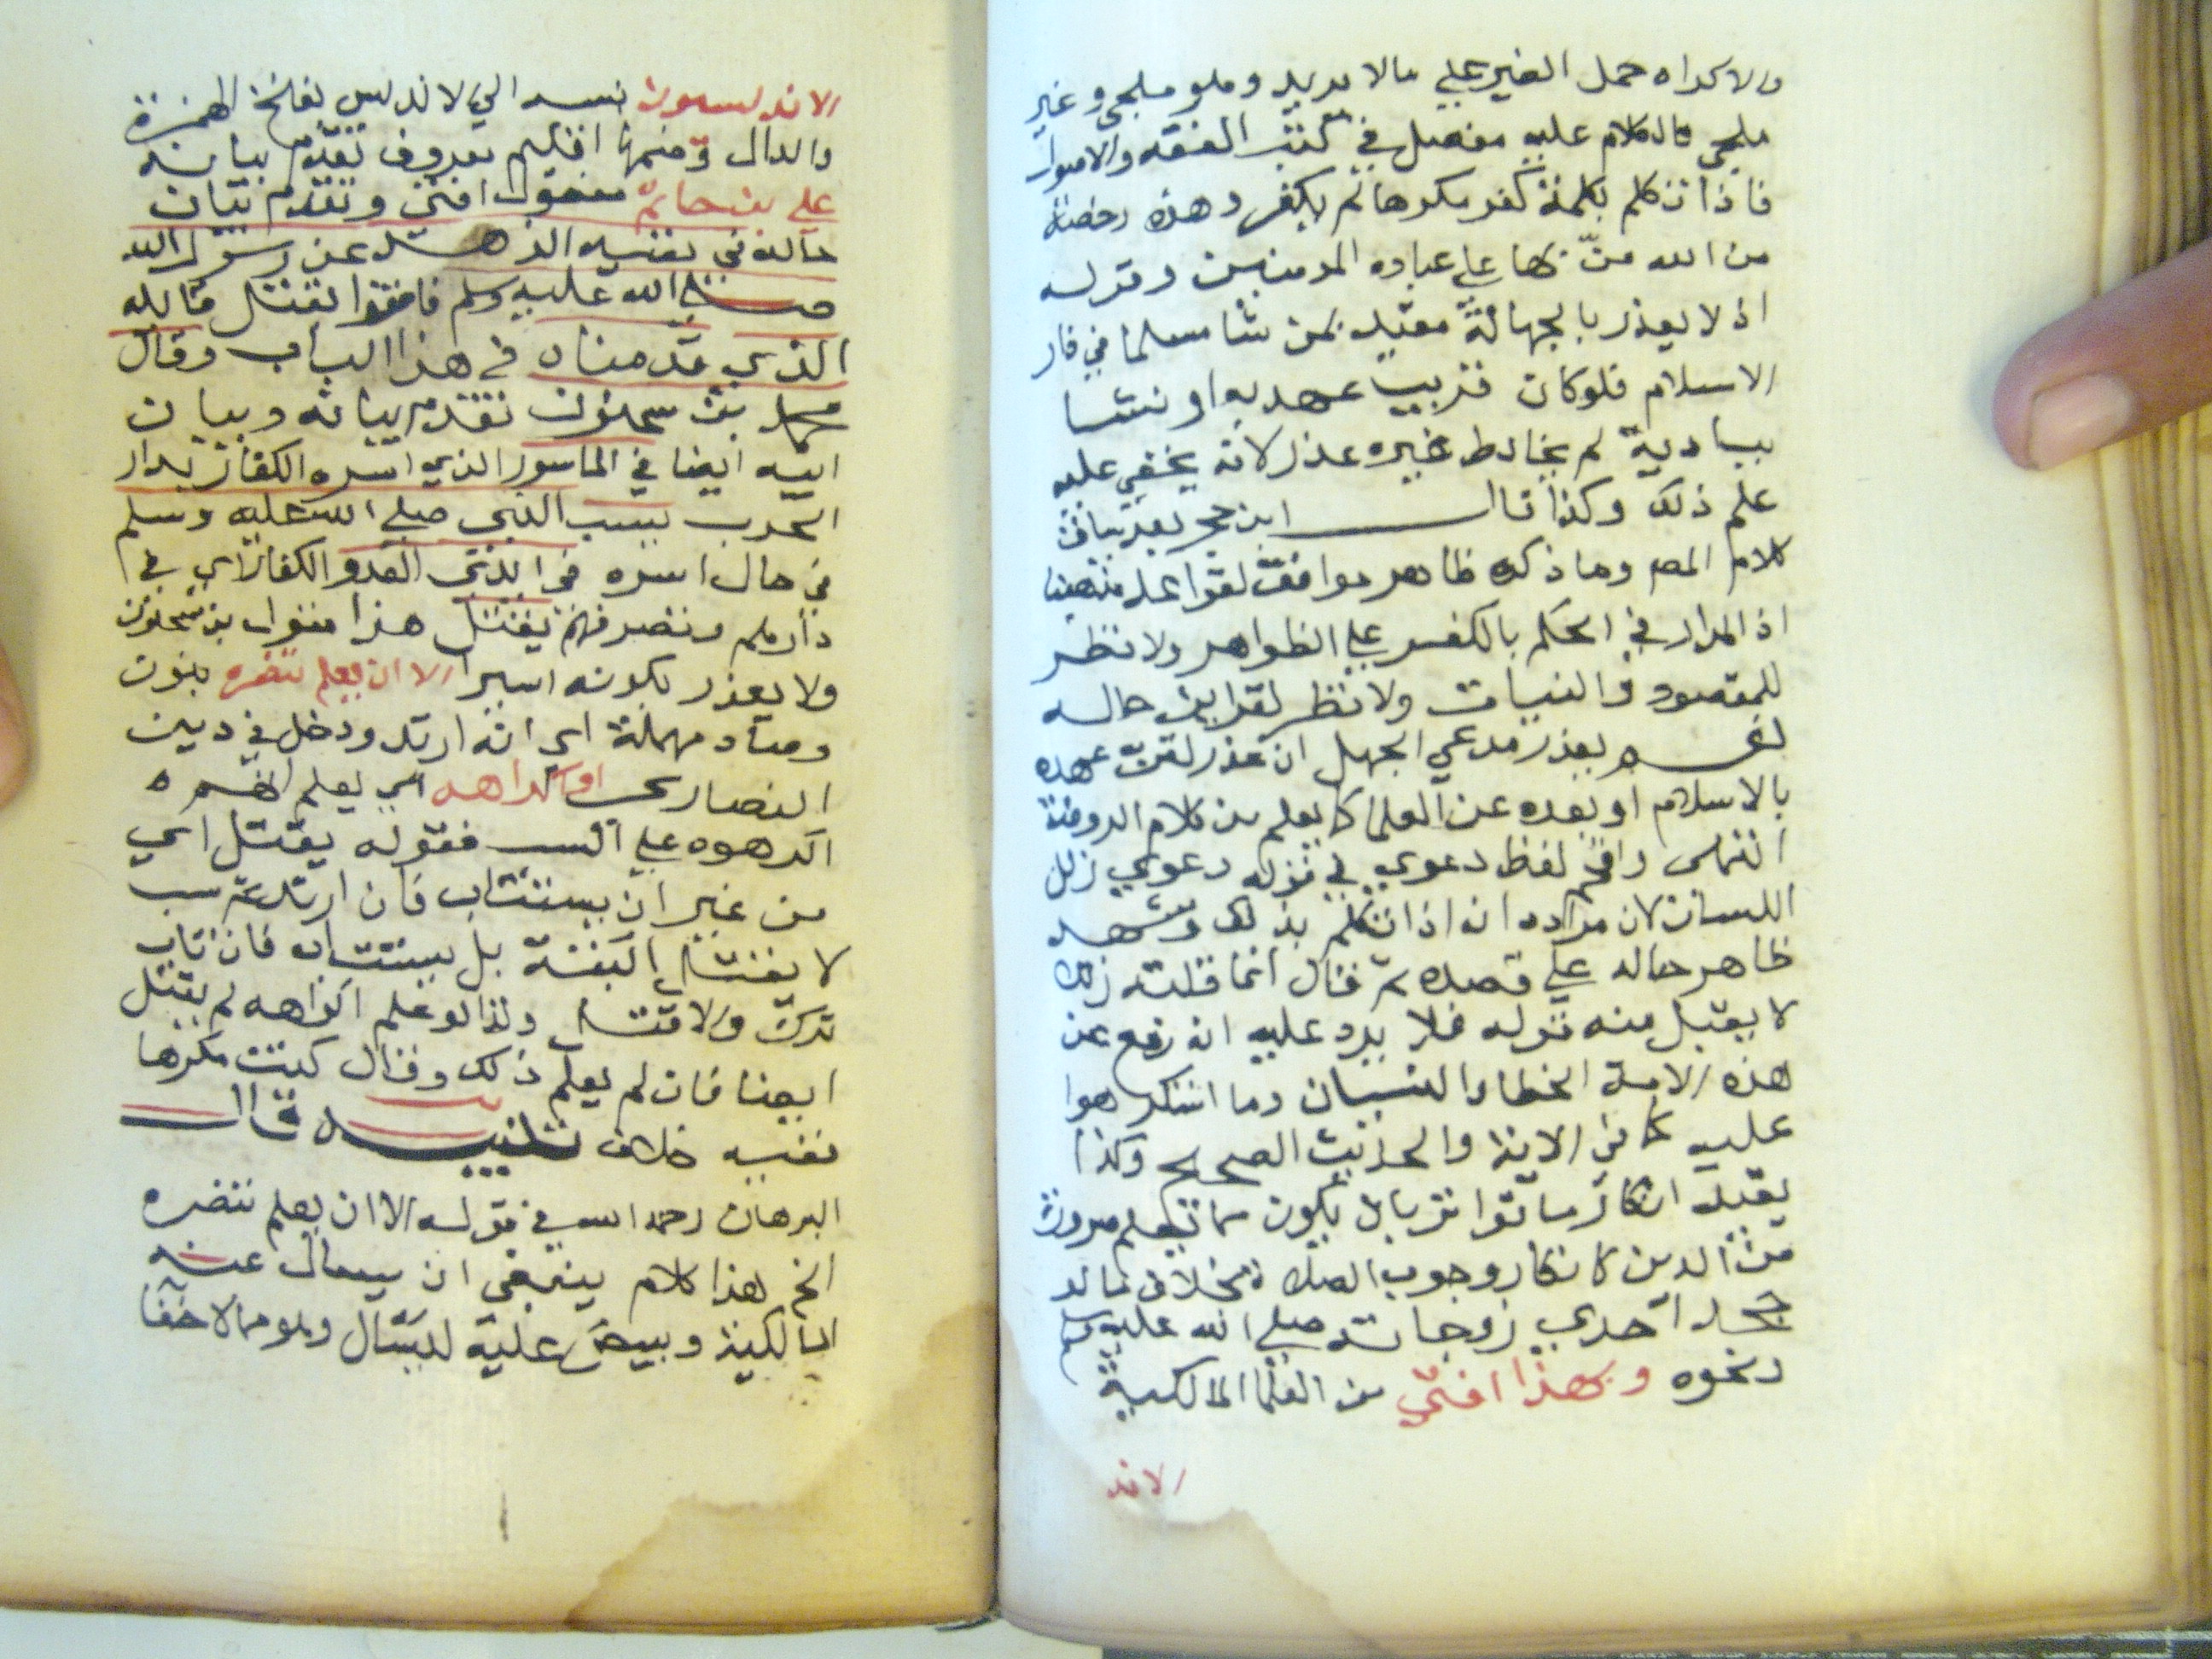 والاكراه حمل الغير على مالا يريد وهو ملجى وغير
ملجى فالكلام عليه مفصل في كتب الفقه والاصول
فاذا تكلم بكلمة كفر مكرها لم يكفر وهذه رخصة
من الله منّ بها على عباده المومنين وقوله
اذ لا يعذر بالجهالة مقيد بمن نشا مسلما في دار
الاسلام فلو كان قريب عهد به او نشا
ببادية لم يخالط غيره عذر لانه يخفى عليه
علم ذلك وكذا قال ابن حجر بعد سياق
كلام المص وما ذكره ظاهر موافق لقواعد مذهبنا
اذ المدار في الحكم بالكفر على الظواهر ولا نظر
للمقصود والنيات ولا نظر لقراين حاله
نعم يعذر مدعي الجهل ان عذر لقرب عهده
بالاسلام او بعده عن العلما كما يعلم من كلام الروضة
انتهى واقحم لفظ دعوى في قوله دعوى زلل
اللسان لان مراده انه اذا تكلم بذلك وشهد
ظاهر حاله على قصده ثم قال انما قلته زلة
لا يقبل منه قوله فلا يرد عليه انه رفع عن
هذه الامة الخطا والنسيان وما استكرهوا
عليه كما في الاية والحديث الصحيح وكذا
يقيد انكار ما تواتر بان يكون مما تعلم ضرورة
من الدين كانكار وجوب الصلاة بخلاف ما لو
جحد احدى زوجاته صلى الله عليه وسلم
ونحوه وبهذا افتى من العلما المالكية
الاند
الاندلسيون نسبه الي لاندلس بفتح الهمزة
والدال وضمها اقليم معروف تقدم بيانه
على بن حاتم مفعول افتى وتقدم بيان
حاله في نفيه الزهد عن رسول الله
صلى الله عليه وسلم فافتوا بقتل قايله
الذي قدمناه في هذا الباب وقال
محمد بن سحنون تقدم بيانه وبيان
ابيه ايضا في الماسور الذي اسره الكفار بدار
الحرب يسب النبي صلى الله عليه وسلم
في حال اسره في ايدي العدو الكفار اي في
دارهم وتصرفهم يقتل هذا مقول بن سحنون
ولا يعذر بكونه اسيرا الا ان يعلم تنصره بنون
وصاد مهملة اي انه ارتد ودخل في دين
النصارى او اكراهه اي يعلم انهم
اكرهوه على السب فقوله يقتل اي
من غير ان يستتاب فان ارتد ثم سب
لا يقتل البتة بل يستتاب فان تاب
ترك والا قتل ولذا لو علم اكراهه لم يقتل
ايضا فان لم يعلم ذلك وقال كنت مكرها
ففيه خلاف تنبيه قال
البرهان رحمه الله في قوله الا ان يعلم تنصره
الخ هذا كلام ينبغي ان يسال عنه
المالكية وبيض عليه ليسال وهو مما لا خفا